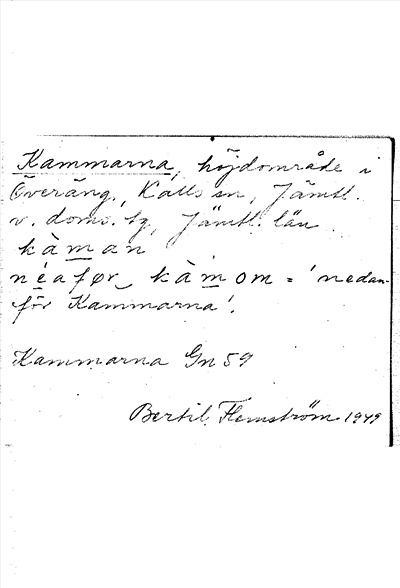 Kammarna, höjdområde i
Överäng, Kalls sn, Jämtl.
v. doms. tg, Jämtl. län.
kàman
néafør kàmom = 'nedan-
för Kammarna'.
Kammarna Gn 59
Bertil Flemström 1949